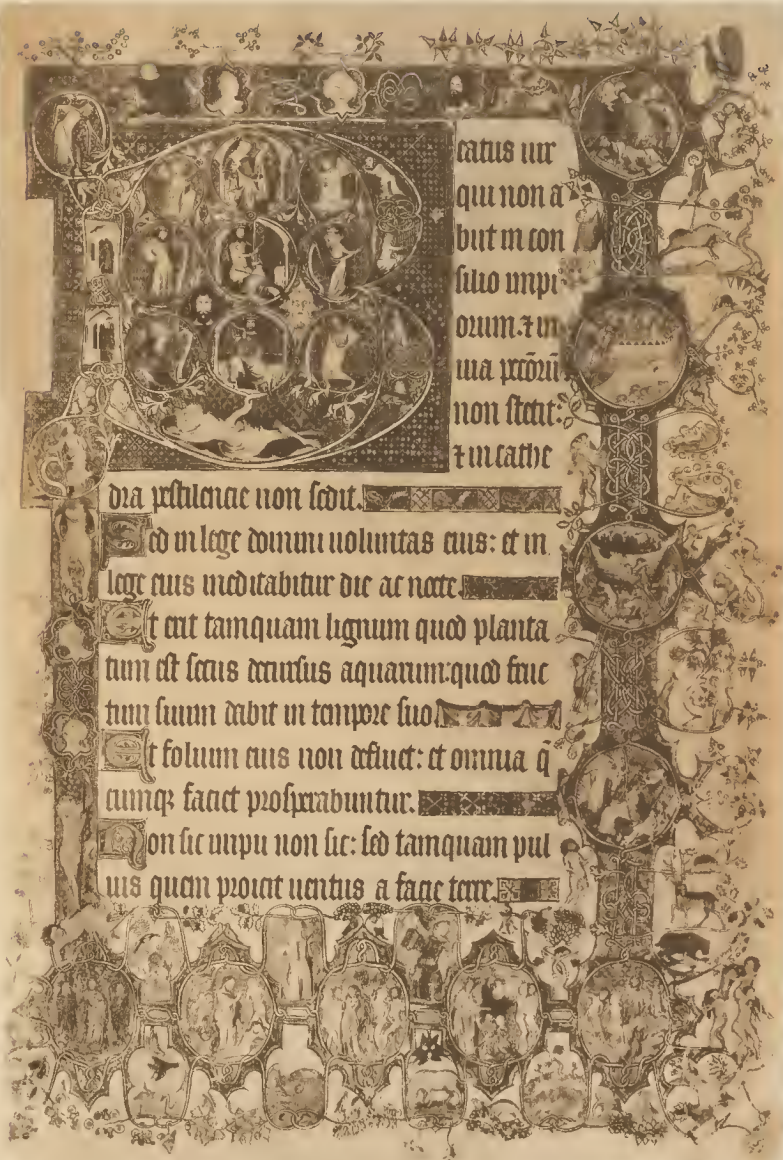 B
catus uir
qui non a
buit in con
silio impi
orum. ⁊ in
uia pccōrū
non stetit:
⁊ in cathe
dra pestilencie non sedit.
Sed in lege domini uoluntas eius: et in
lege eius meditabitur die ac nocte.
Et erit tamquam lignum quod planta
tum est secus decursus aquarum: quod fruc
tum suum dabit in tempore suo.
Et folium eius non defluet: et omnia q̄
cumqꝫ faciet prosperabuntur.
Non sic impii non sic: sed tamquam pul
uis quem proicit uentus a facie terre.